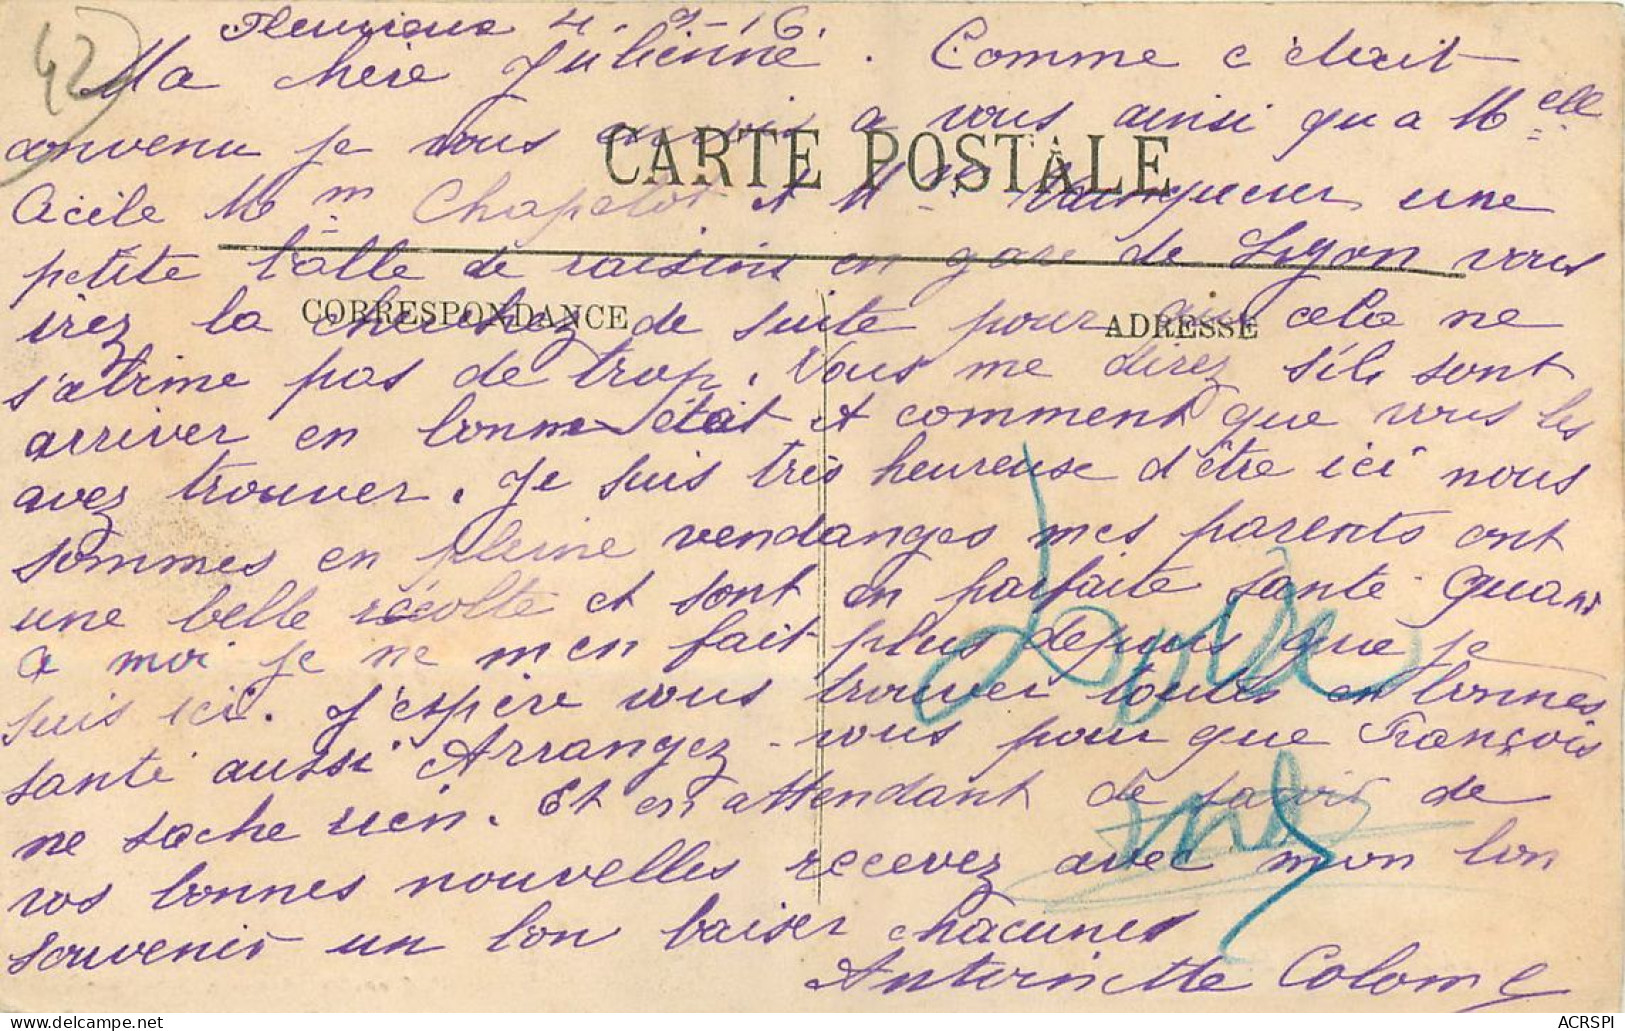 42
Fleurieux 4-9-16.
Ma chère Julienne. Comme c'était
convenu je vous envois a vous ainsi qu'a Melle
CARTE POSTALE
Cécile Mm Chapelot et Mme une
petite balle de raisins en gare de Lyon vous
irez la cherchez de suite pour que cela ne
CORRESPONDANCE
ADRESSE
s'abime pas de trop. Vous me direz s'ils sont
arriver en bonne état et comment que vous les
avez trouver. Je suis très heureuse d'être ici nous
sommes en pleine vendanges mes parents ont
une belle récolte et sont en parfaite santé quant
a moi je ne m'en fait plus depuis que je
suis ici. J'espère vous trouver toutes en bonnes
santé aussi Arrangez-vous pour que François
ne sache rien. Et en attendant de savoir de
vos bonnes nouvelles recevez avec mon bon
souvenir un bon baiser chacunes
Antoinette Colomb
ACRSPI